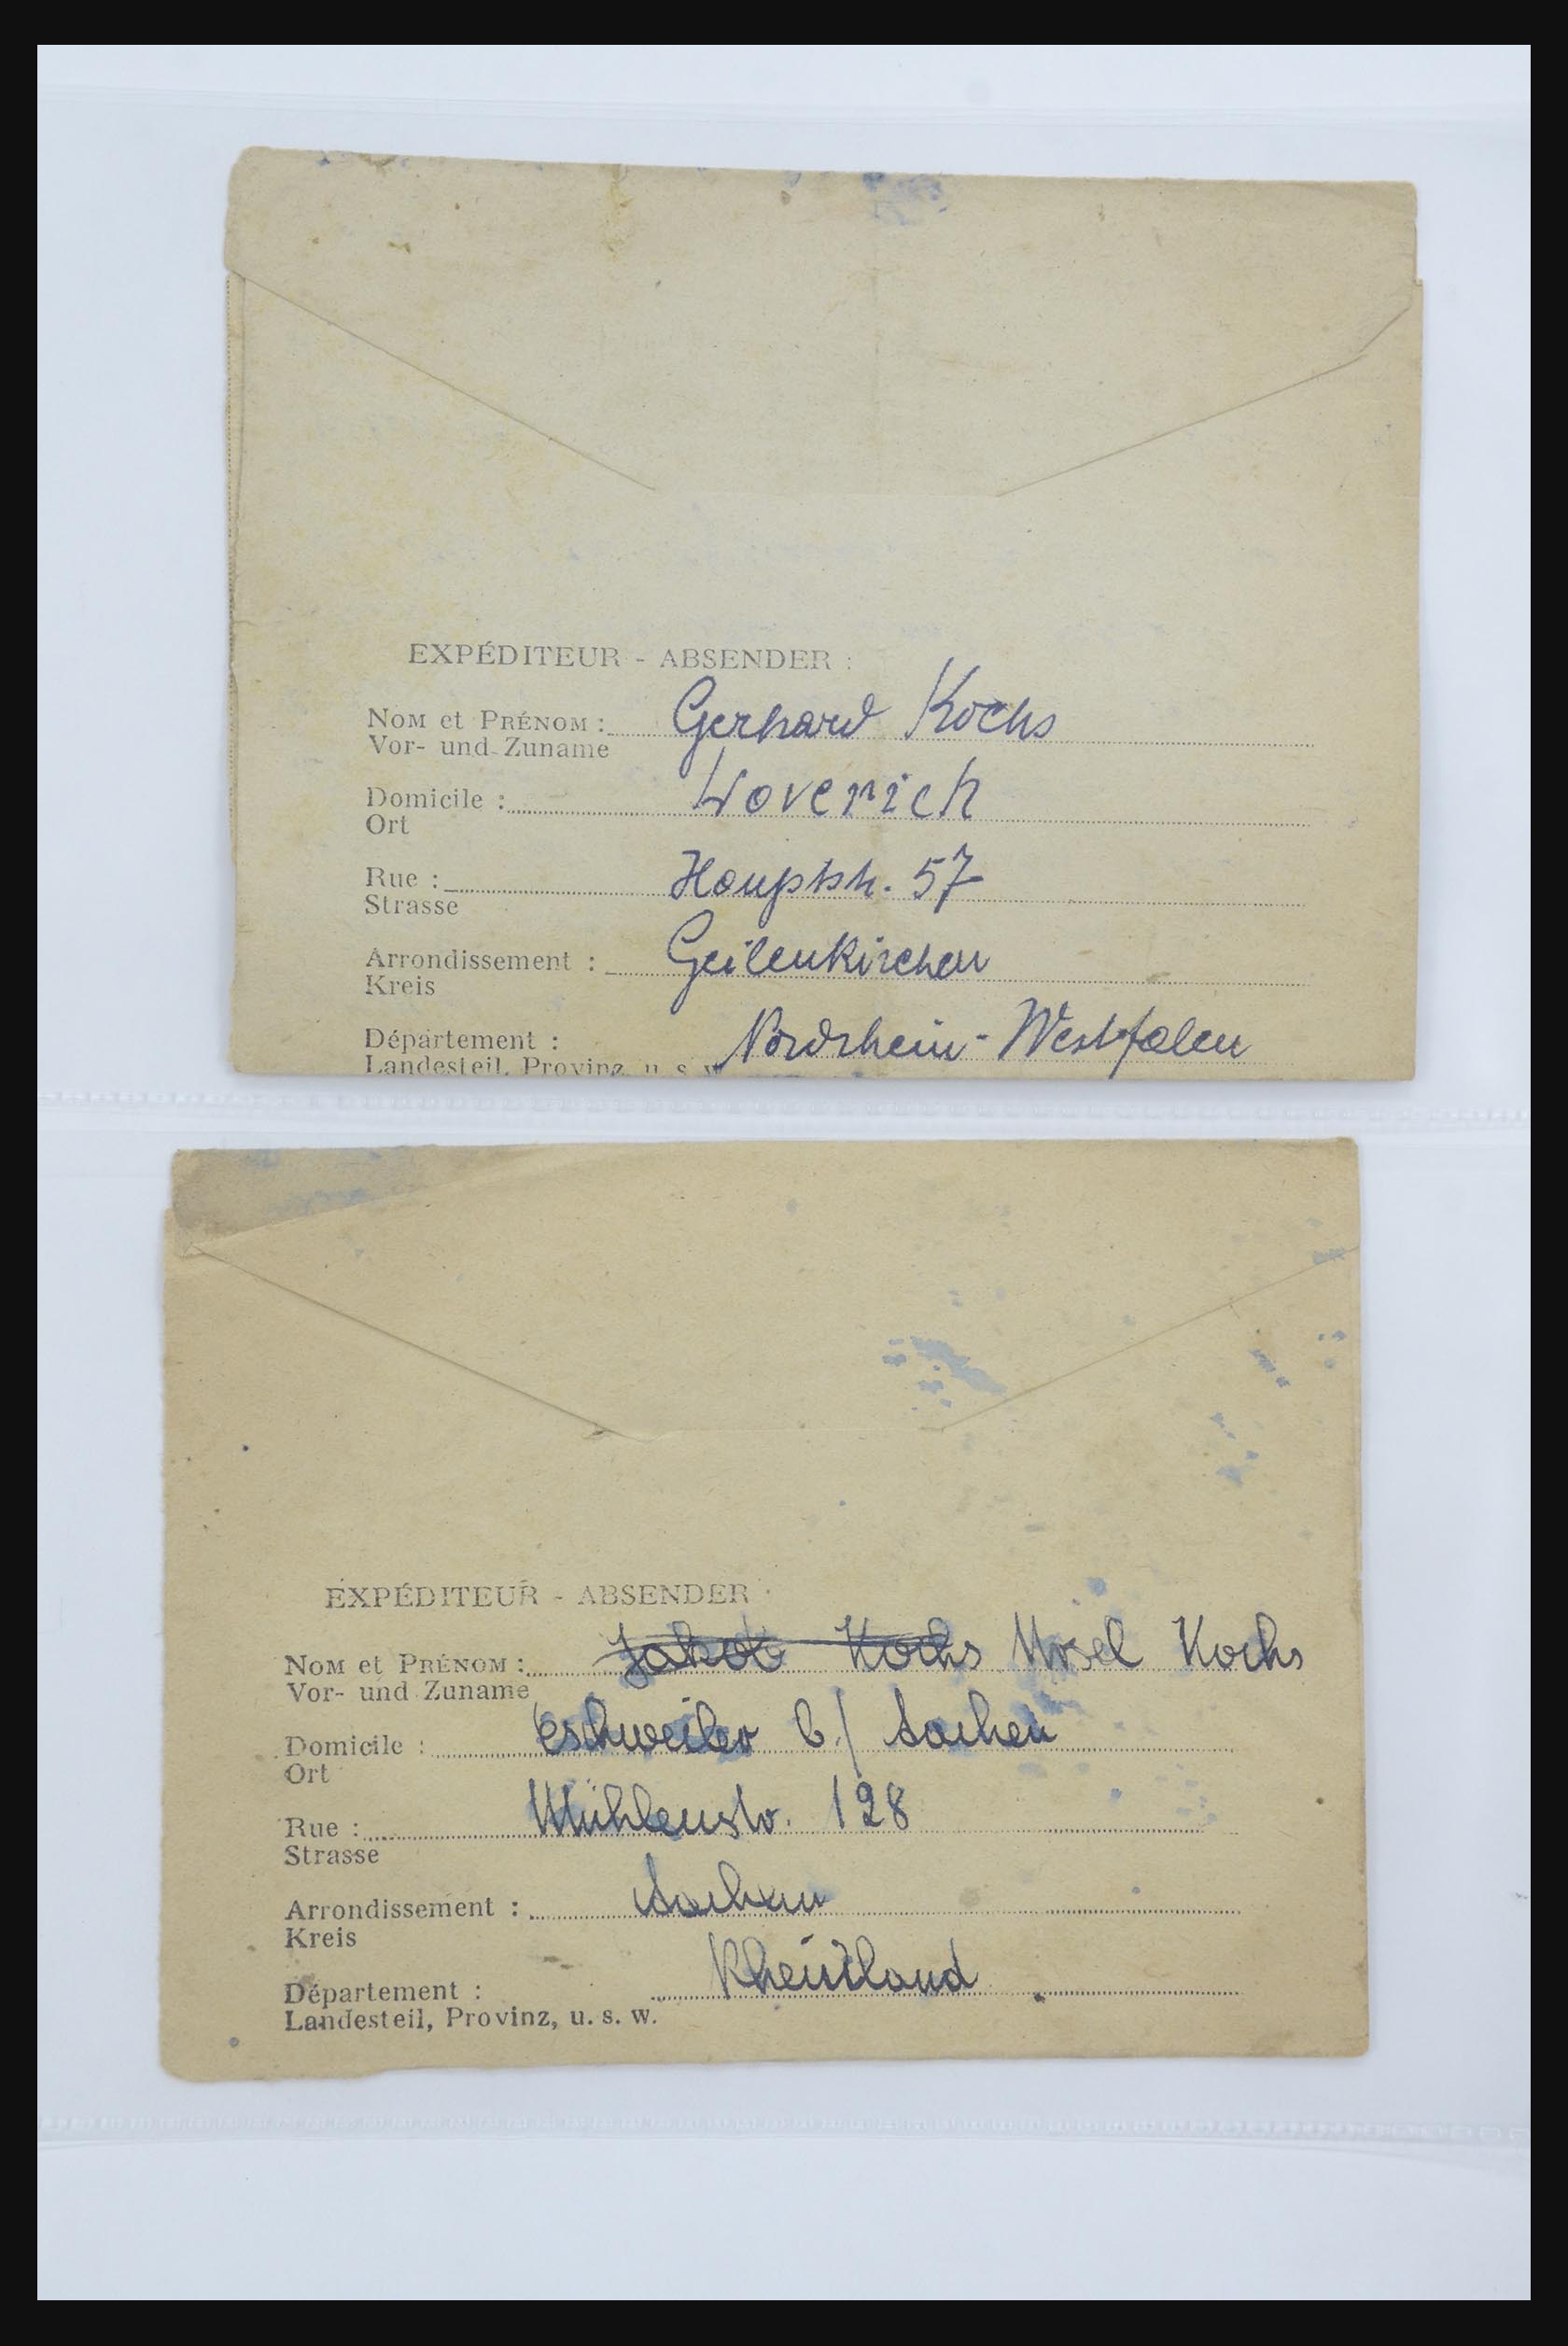 EXPÉDITEUR - ABSENDER :
NOM et PRÉNOM : Gerhard Kochs
Vor- und Zuname
Domicile : Loverich
Ort
Rue : Hauptstr. 57
Strasse
Arrondissement : Geilenkirchen
Kreis
Département : Nordrhein-Westfalen
Landesteil, Provinz, u. s. w.
EXPÉDITEUR - ABSENDER :
NOM et PRÉNOM : Jakob Kochs Kochs
Vor- und Zuname
Domicile : Eschweiler b./ Aachen
Ort
Rue : Mühlenstr. 128
Strasse
Arrondissement : Aachen
Kreis
Département : Rheinland
Landesteil, Provinz, u. s. w.